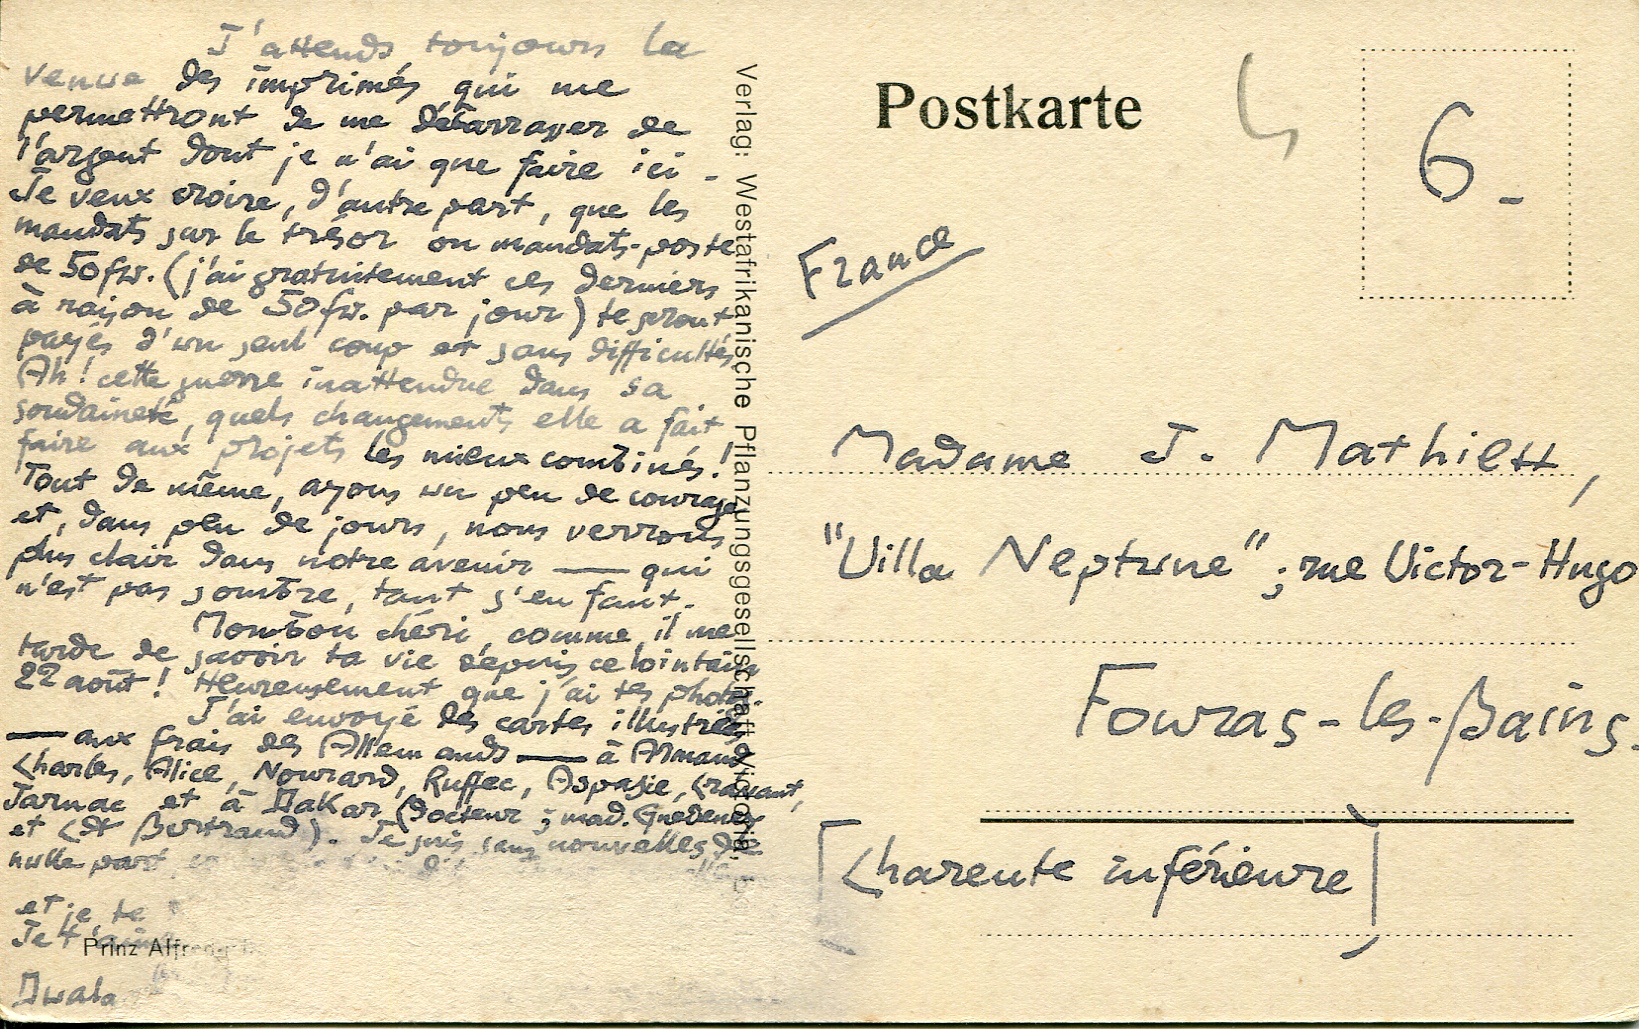 J'attends toujours la
venue des imprimés qui me
permettront de me débarrasser de
l'argent dont je n'ai que faire ici -
Je veux croire, d'autre part, que les
mandats sur le trésor ou mandats-poste
de 50 frs. (j'ai gratuitement ces derniers
à raison de 50 frs. par jour) te seront
payés d'un seul coup et sans difficultés.
Ah! cette guerre inattendue dans sa
soudaineté, quels changements elle a fait
faire aux projets les mieux combinés!
Tout de même, ayons un peu de courage
et, dans peu de jours, nous verrons
plus clair dans notre avenir — qui
n'est pas sombre, tant s'en faut.
Monbon chéri, comme il me
tarde de savoir ta vie depuis ce lointain
22 août! Heureusement que j'ai tes photos.
J'ai envoyé des cartes illustrées
— aux frais des Allemands — à Armand
Charles, Alice, Nourard, Ruffec, Aspasie,
Jarnac et à Dakar (docteur; mad.
et Cdt Bertrand). Je suis sans nouvelles de
nulle part
et je te
Je t'aime
Duala
Prinz Alfred
Verlag: Westafrikanische Pflanzungsgesellschaft Victoria.
Postkarte
6_
France
Madame J. Mathieu,
"Villa Neptune"; rue Victor-Hugo
Fouras-les-Bains.
[Charente inférieure]